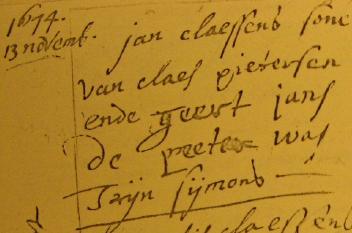 1674.
13 novemb.
jan claessens sone
van claes pietersen
ende geert jans
de peeter was
Trijn sijmons
claessen